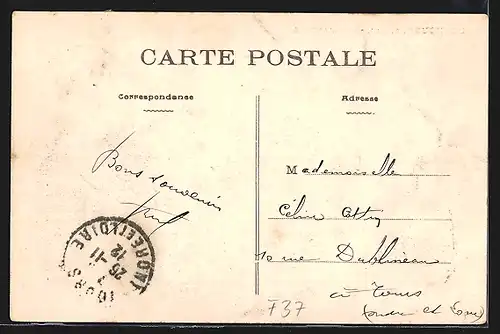 CARTE POSTALE
Correspondance
Adresse
Bons souvenirs
Mademoiselle
Céline
10 rue Dublineau
à Tours
Indre et Loire
TOURS
INDRE ET LOIRE
25-11
12
F37